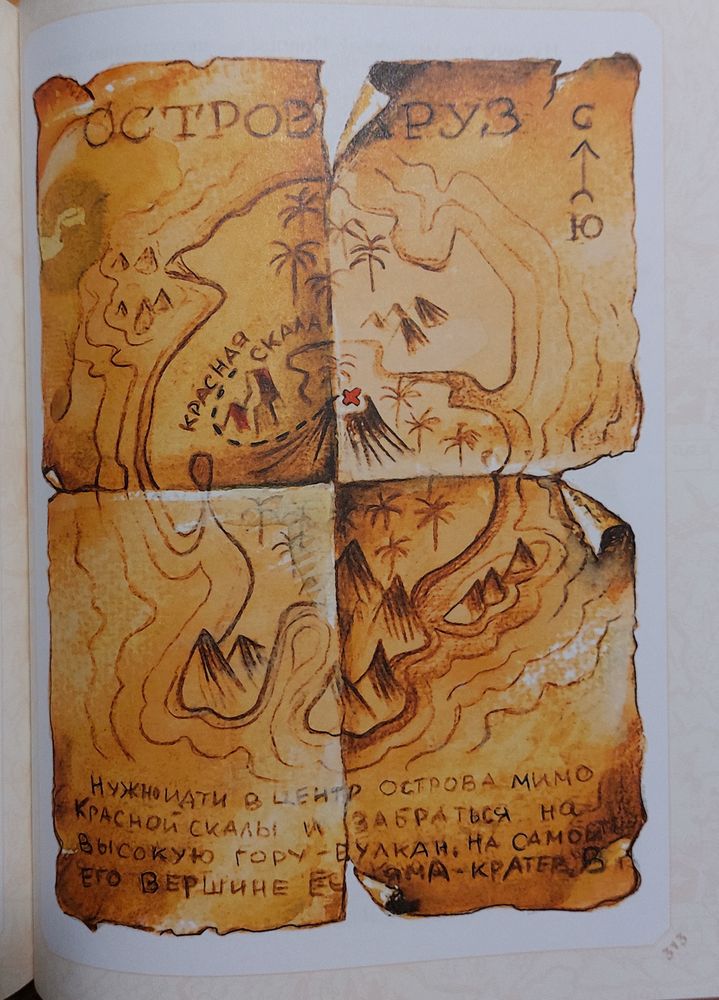 ОСТРОВ КРУЗ
С
Ю
КРАСНАЯ СКАЛА
НУЖНО ИДТИ В ЦЕНТР ОСТРОВА МИМО
КРАСНОЙ СКАЛЫ И ЗАБРАТЬСЯ НА
ВЫСОКУЮ ГОРУ-ВУЛКАН. НА САМОЙ
ЕГО ВЕРШИНЕ ЕС ЯМА-КРАТЕР. В
313